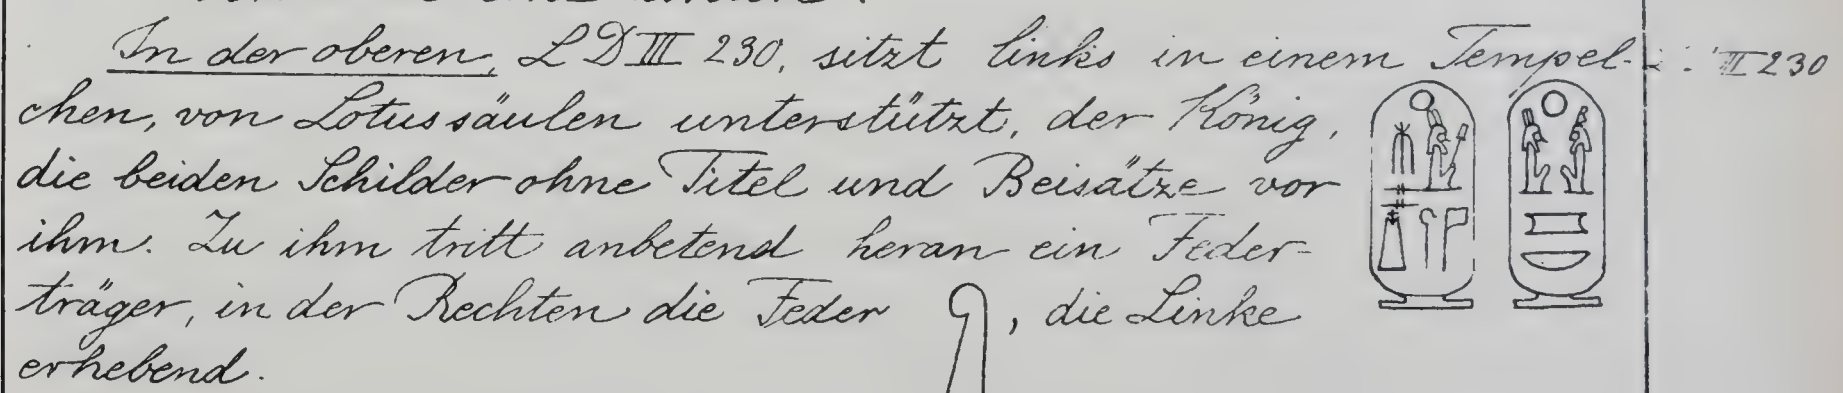 In der oberen, LD III 230, sitzt links in einem Tempel-
II 230
chen, von Lotussäulen unterstützt, der König,
die beiden Schilder ohne Titel und Beisätze vor
ihm. Zu ihm tritt anbetend heran ein Feder-
träger, in der Rechten die Feder , die Linke
erhebend.